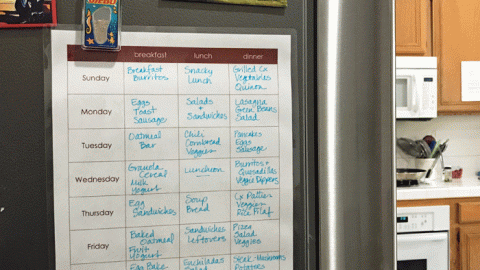 breakfast lunch dinner
Sunday
Breakfast
Burritos
Snacky
Lunch
Grilled Cx
Vegetables
Quinoa
Monday
Eggs
Toast
Sausage
Salads
+
Sandwiches
Lasagna
Green Beans
Salad
Tuesday
Oatmeal
Bar
Chili
Cornbread
Veggies
Pancakes
Eggs
Sausage
Wednesday
Granola
Cereal
Milk
Yogurt
Luncheon
Burritos +
Quesadillas
Veggie Dippers
Thursday
Egg
Sandwiches
Soup
Bread
Cx Patties
Veggies
Rice Pilaf
Friday
Baked
Oatmeal
Fruit
Yogurt
Sandwiches
Leftovers
Pizza
Salad
Veggies
Egg Bake
Enchiladas
Salad
Steak - Mushrooms
Potatoes